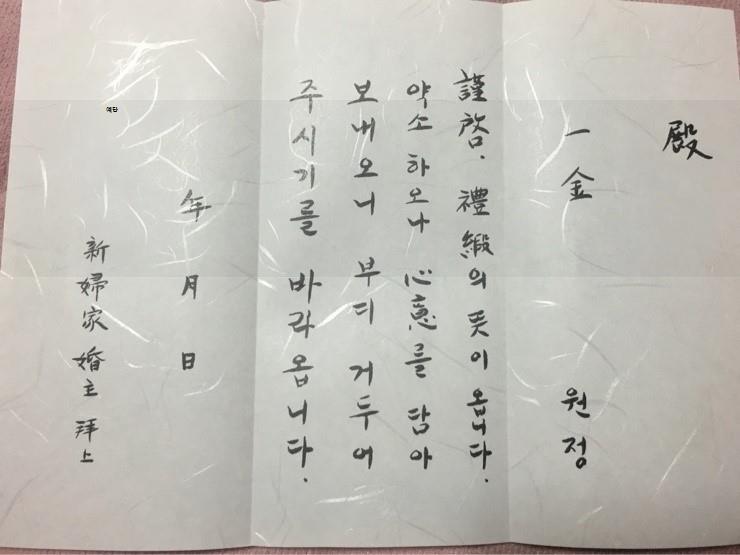 殿
一金 원정
謹啓. 禮緞의 뜻이옵니다.
약소하오나 心意를 담아
보내오니 부디 거두어
주시기를 바라옵니다.
年 月 日
新婦家 婚主 拜上
예단